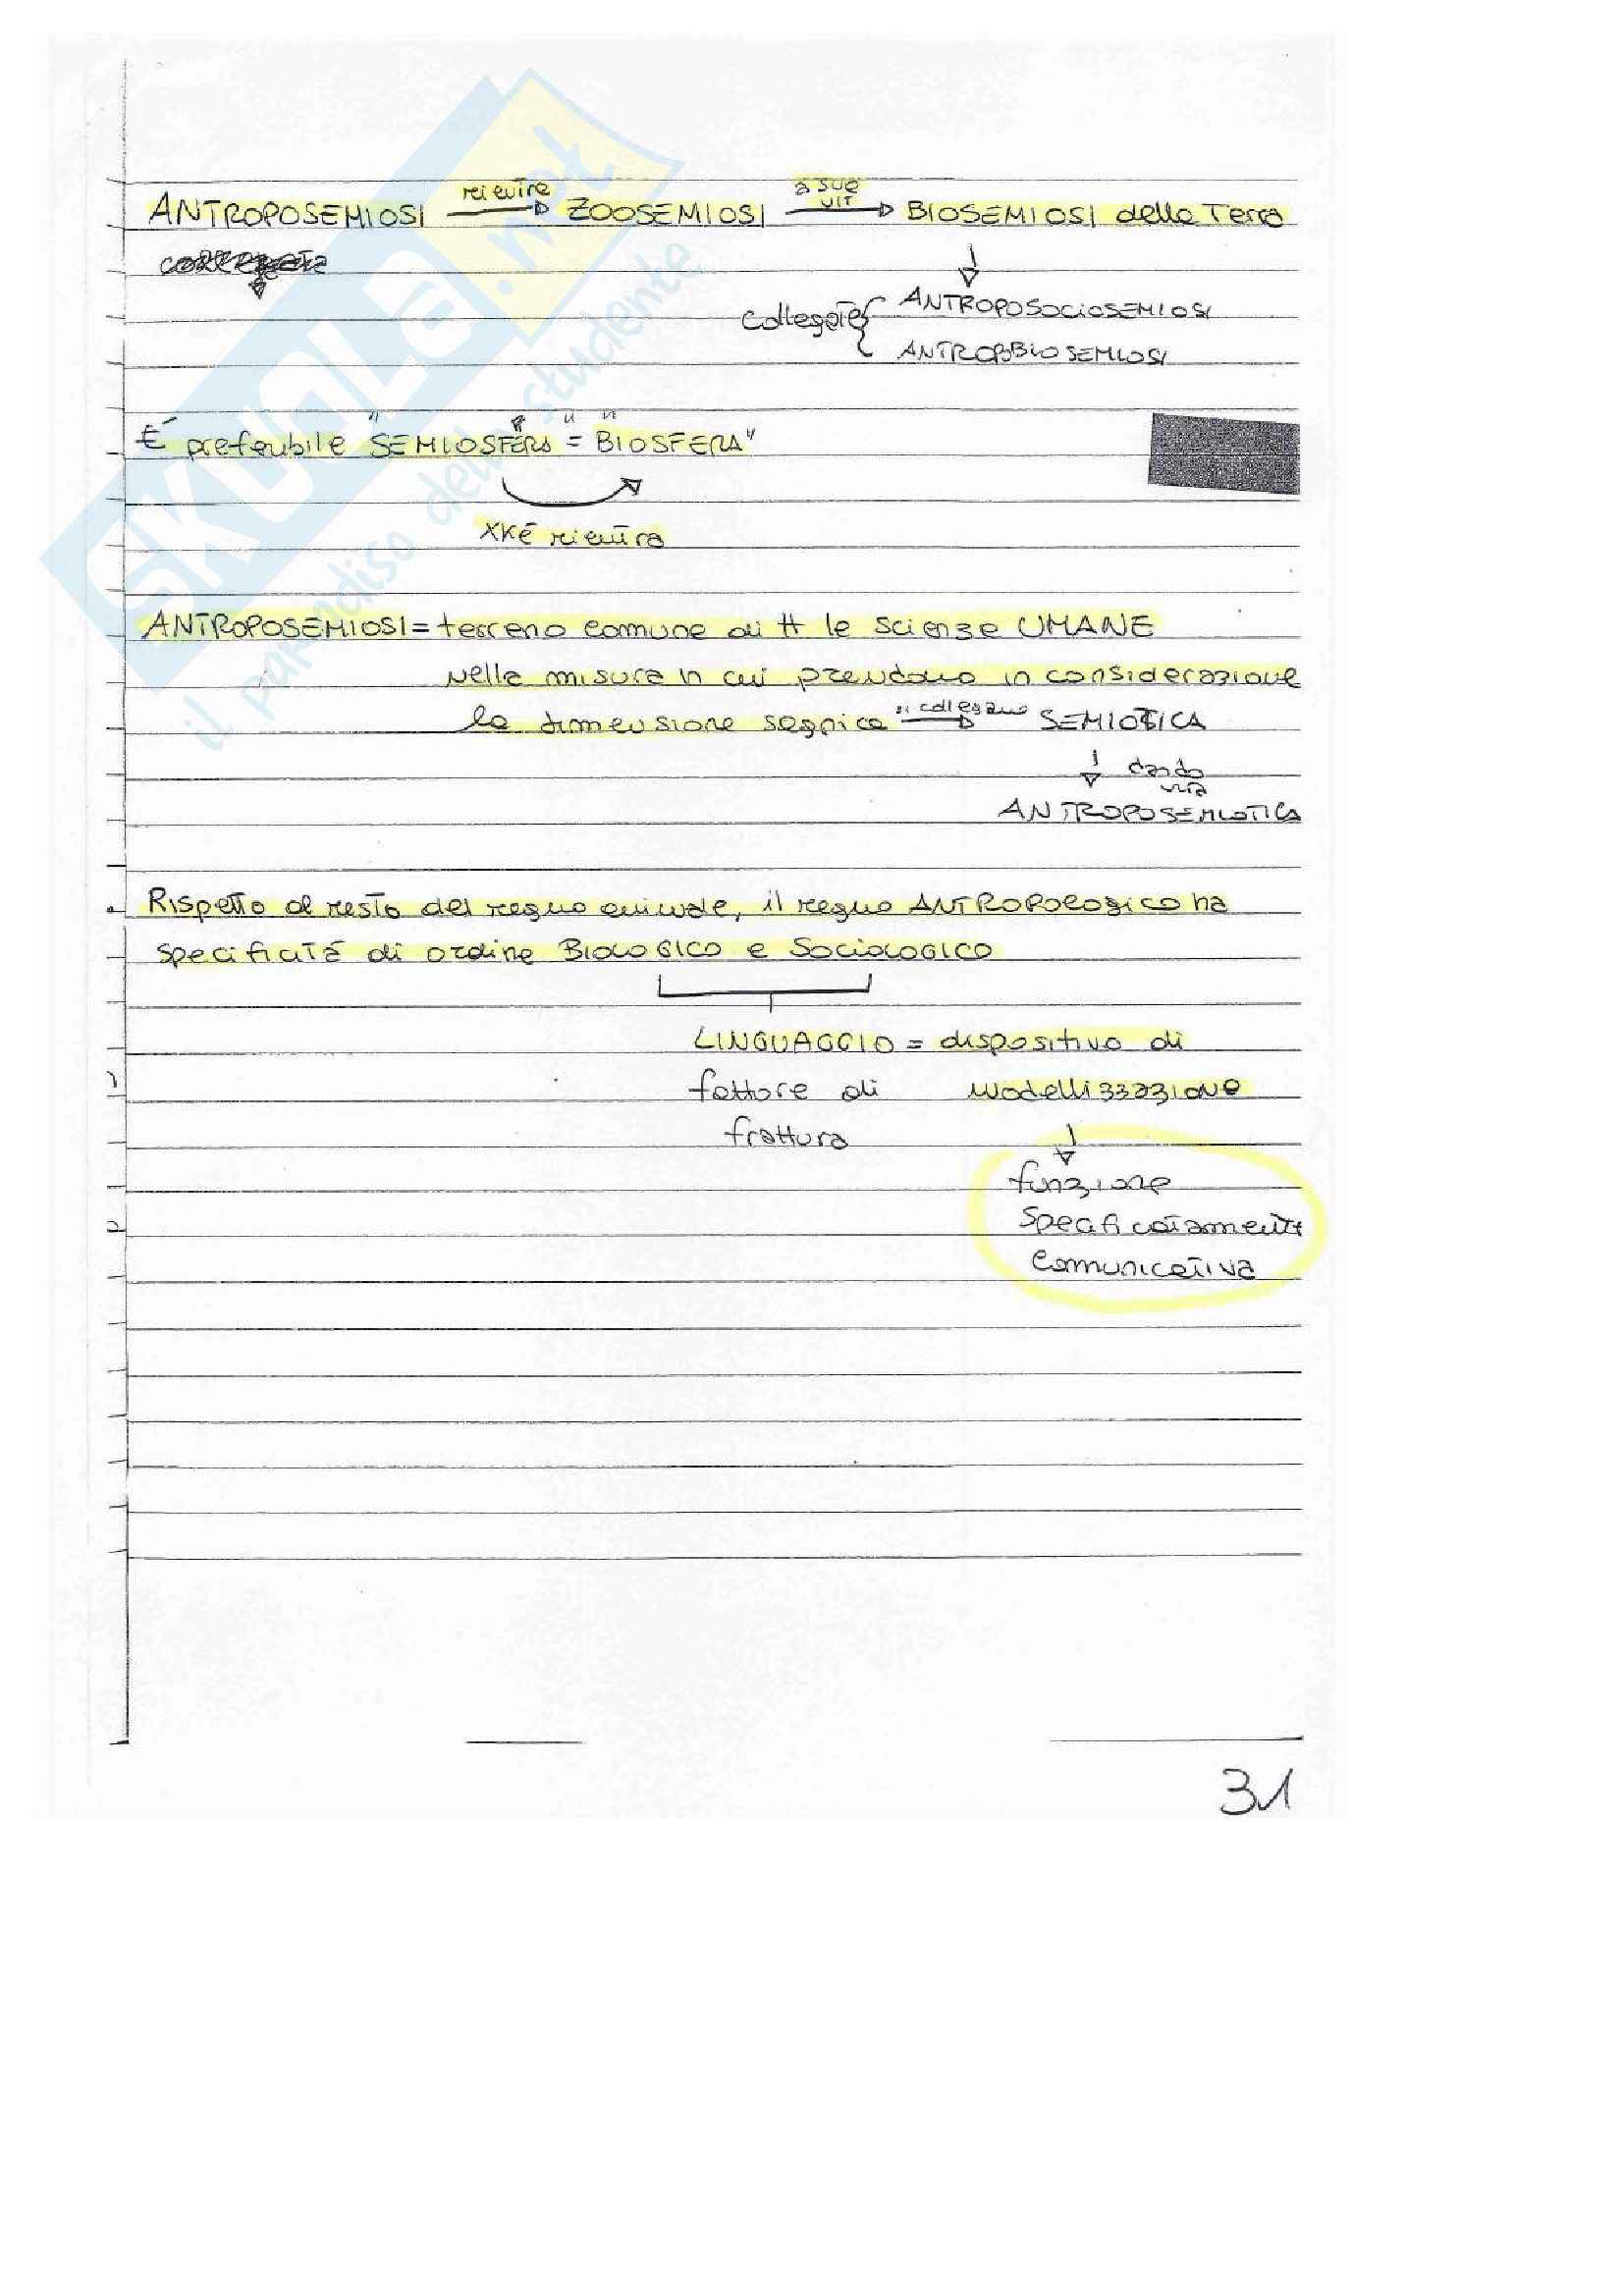 rientra a sua
ANTROPOSEMIOSI → ZOOSEMIOSI → BIOSEMIOSI della Terra
collegate { ANTROPOSOCIOSEMIOSI
ANTROPOBIOSEMIOSI
É preferibile "SEMIOSFERA = BIOSFERA"
xké rientra
ANTROPOSEMIOSI = terreno comune di tt le scienze UMANE
nella misura in cui prendono in considerazione
la dimensione segnica si collegano → SEMIOTICA
dando
vita
ANTROPOSEMIOTICA
Rispetto al resto del regno animale, il regno ANTROPOLOGICO ha
specificità di ordine BIOLOGICO e SOCIOLOGICO
LINGUAGGIO = dispositivo di
fattore di modellizzazione
frattura
funzione
specificatamente
comunicativa
31
SKUOLA.net
il paradiso dello studente